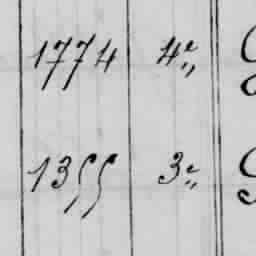 1774 4e,,
1355 3e,,